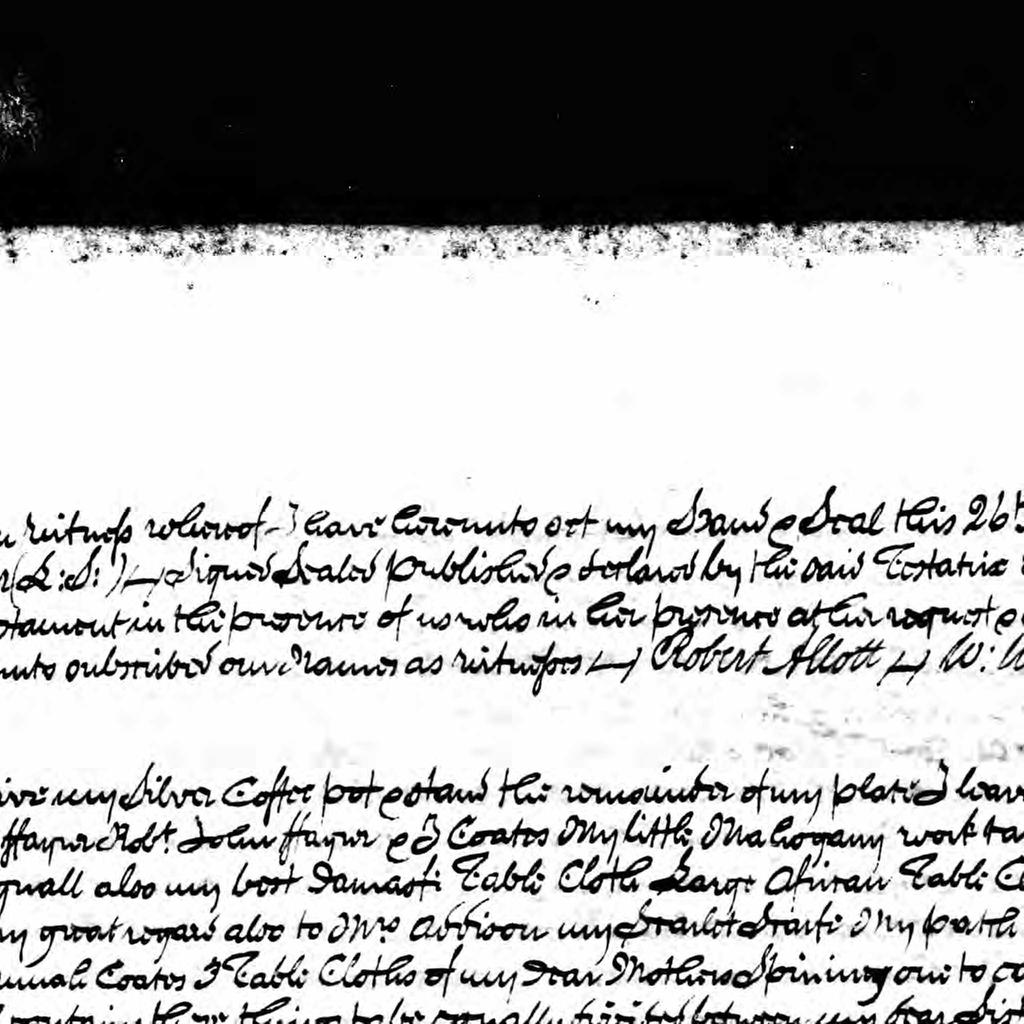 witness whereof I have hereunto set my Hand & Seal this 26th
(L:S:) Signed Sealed published & declared by the said Testatrix
stament in the presence of us who in her presence at her request &
unto subscribed our Names as witnesses Robert Allott W:
ive my Silver Coffee pot & stand the remainder of my plate I leav
Robt John & J Coates My little Mahogany work ta
quall also my best Damask Table Cloth Large Table C
great regard also to Mrs Addison my Scarlet Scarfe My
Coates 3 Table Cloths of my Dear Mothers Spinning one to
these things to be equally divided between my Dear Sist